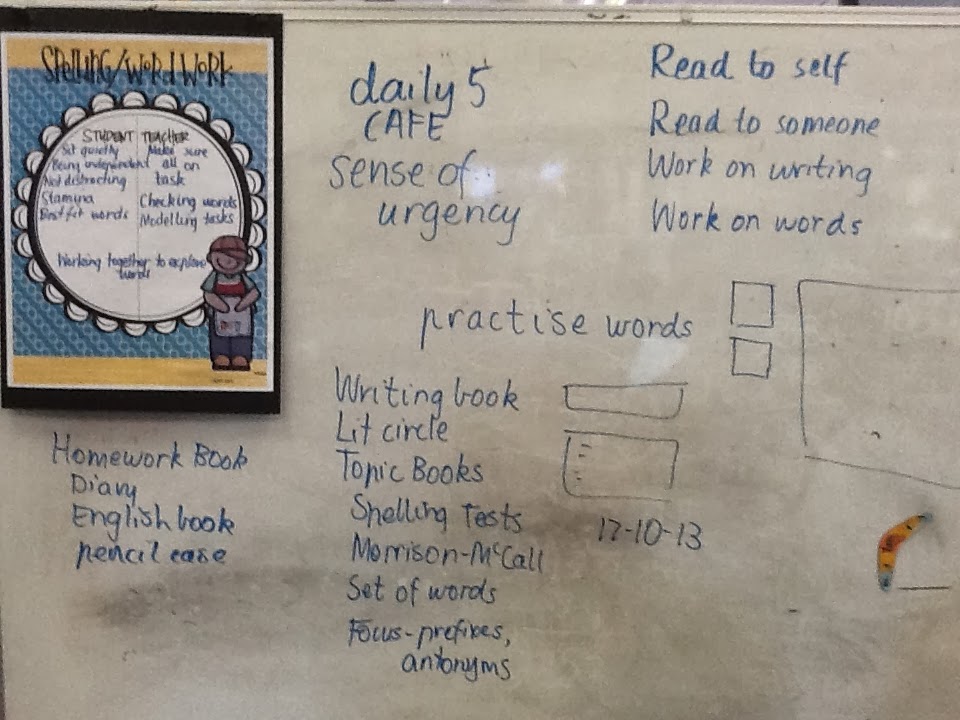 Spelling/Word Work
STUDENT TEACHER
Sit quietly
Being independent
Not distracting
Stamina
Best fit words
Make sure
all on
task
Checking words
Modelling tasks
Working together to explore
words
daily 5
CAFE
sense of
urgency
Read to self
Read to someone
Work on writing
Work on words
practise words
Homework Book
Diary
English book
pencil case
Writing book
Lit circle
Topic Books
Spelling Tests
Morrison-McCall
Set of words
Focus-prefixes,
antonyms
17-10-13